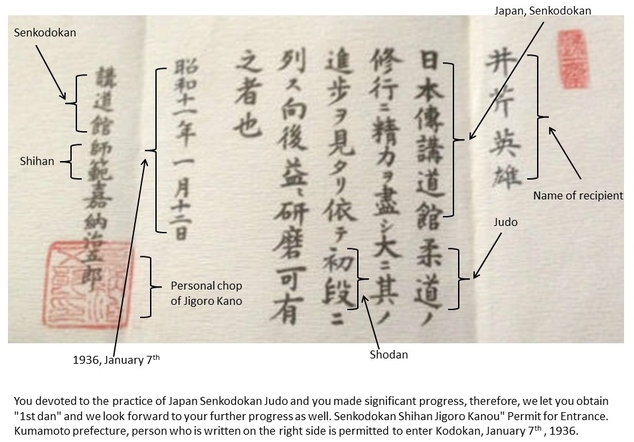 Japan, Senkodokan
Senkodokan
Shihan
井芹英雄
日本傳講道館柔道ノ
修行ニ精力ヲ盡シ大ニ其ノ
進歩ヲ見タリ依テ初段ニ
列ス向後益〻研磨可有
之者也
昭和十一年一月十二日
講道館師範嘉納治五郎
Name of recipient
Judo
Personal chop
of Jigoro Kano
Shodan
1936, January 7th
You devoted to the practice of Japan Senkodokan Judo and you made significant progress, therefore, we let you obtain
"1st dan" and we look forward to your further progress as well. Senkodokan Shihan Jigoro Kanou" Permit for Entrance.
Kumamoto prefecture, person who is written on the right side is permitted to enter Kodokan, January 7th , 1936.